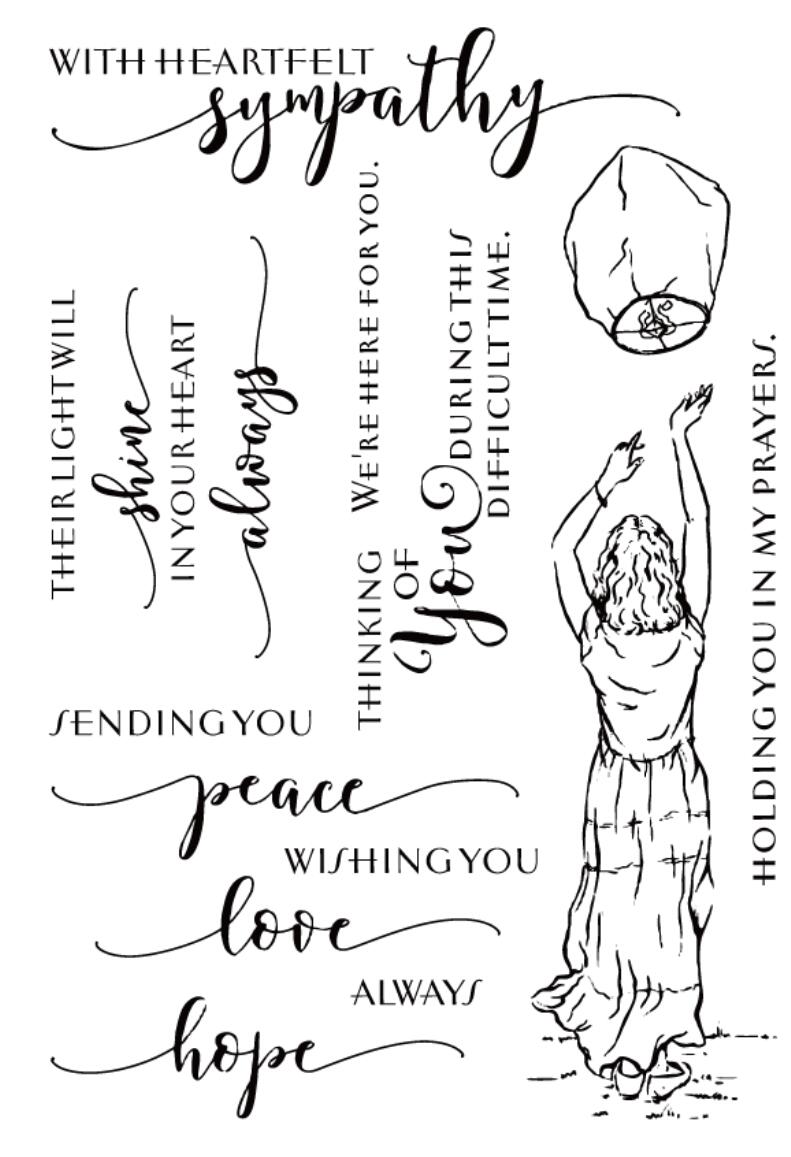 WITH HEARTFELT
sympathy
THEIR LIGHT WILL
shine
IN YOUR HEART
always
WE'RE HERE FOR YOU.
THINKING
OF
You
DURING THIS
DIFFICULT TIME.
HOLDING YOU IN MY PRAYERS.
SENDING YOU
peace
WISHING YOU
love
ALWAYS
hope